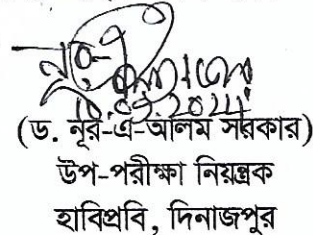 (ড. নূর-এ-আলম সরকার)
উপ-পরীক্ষা নিয়ন্ত্রক
হাবিপ্রবি, দিনাজপুর